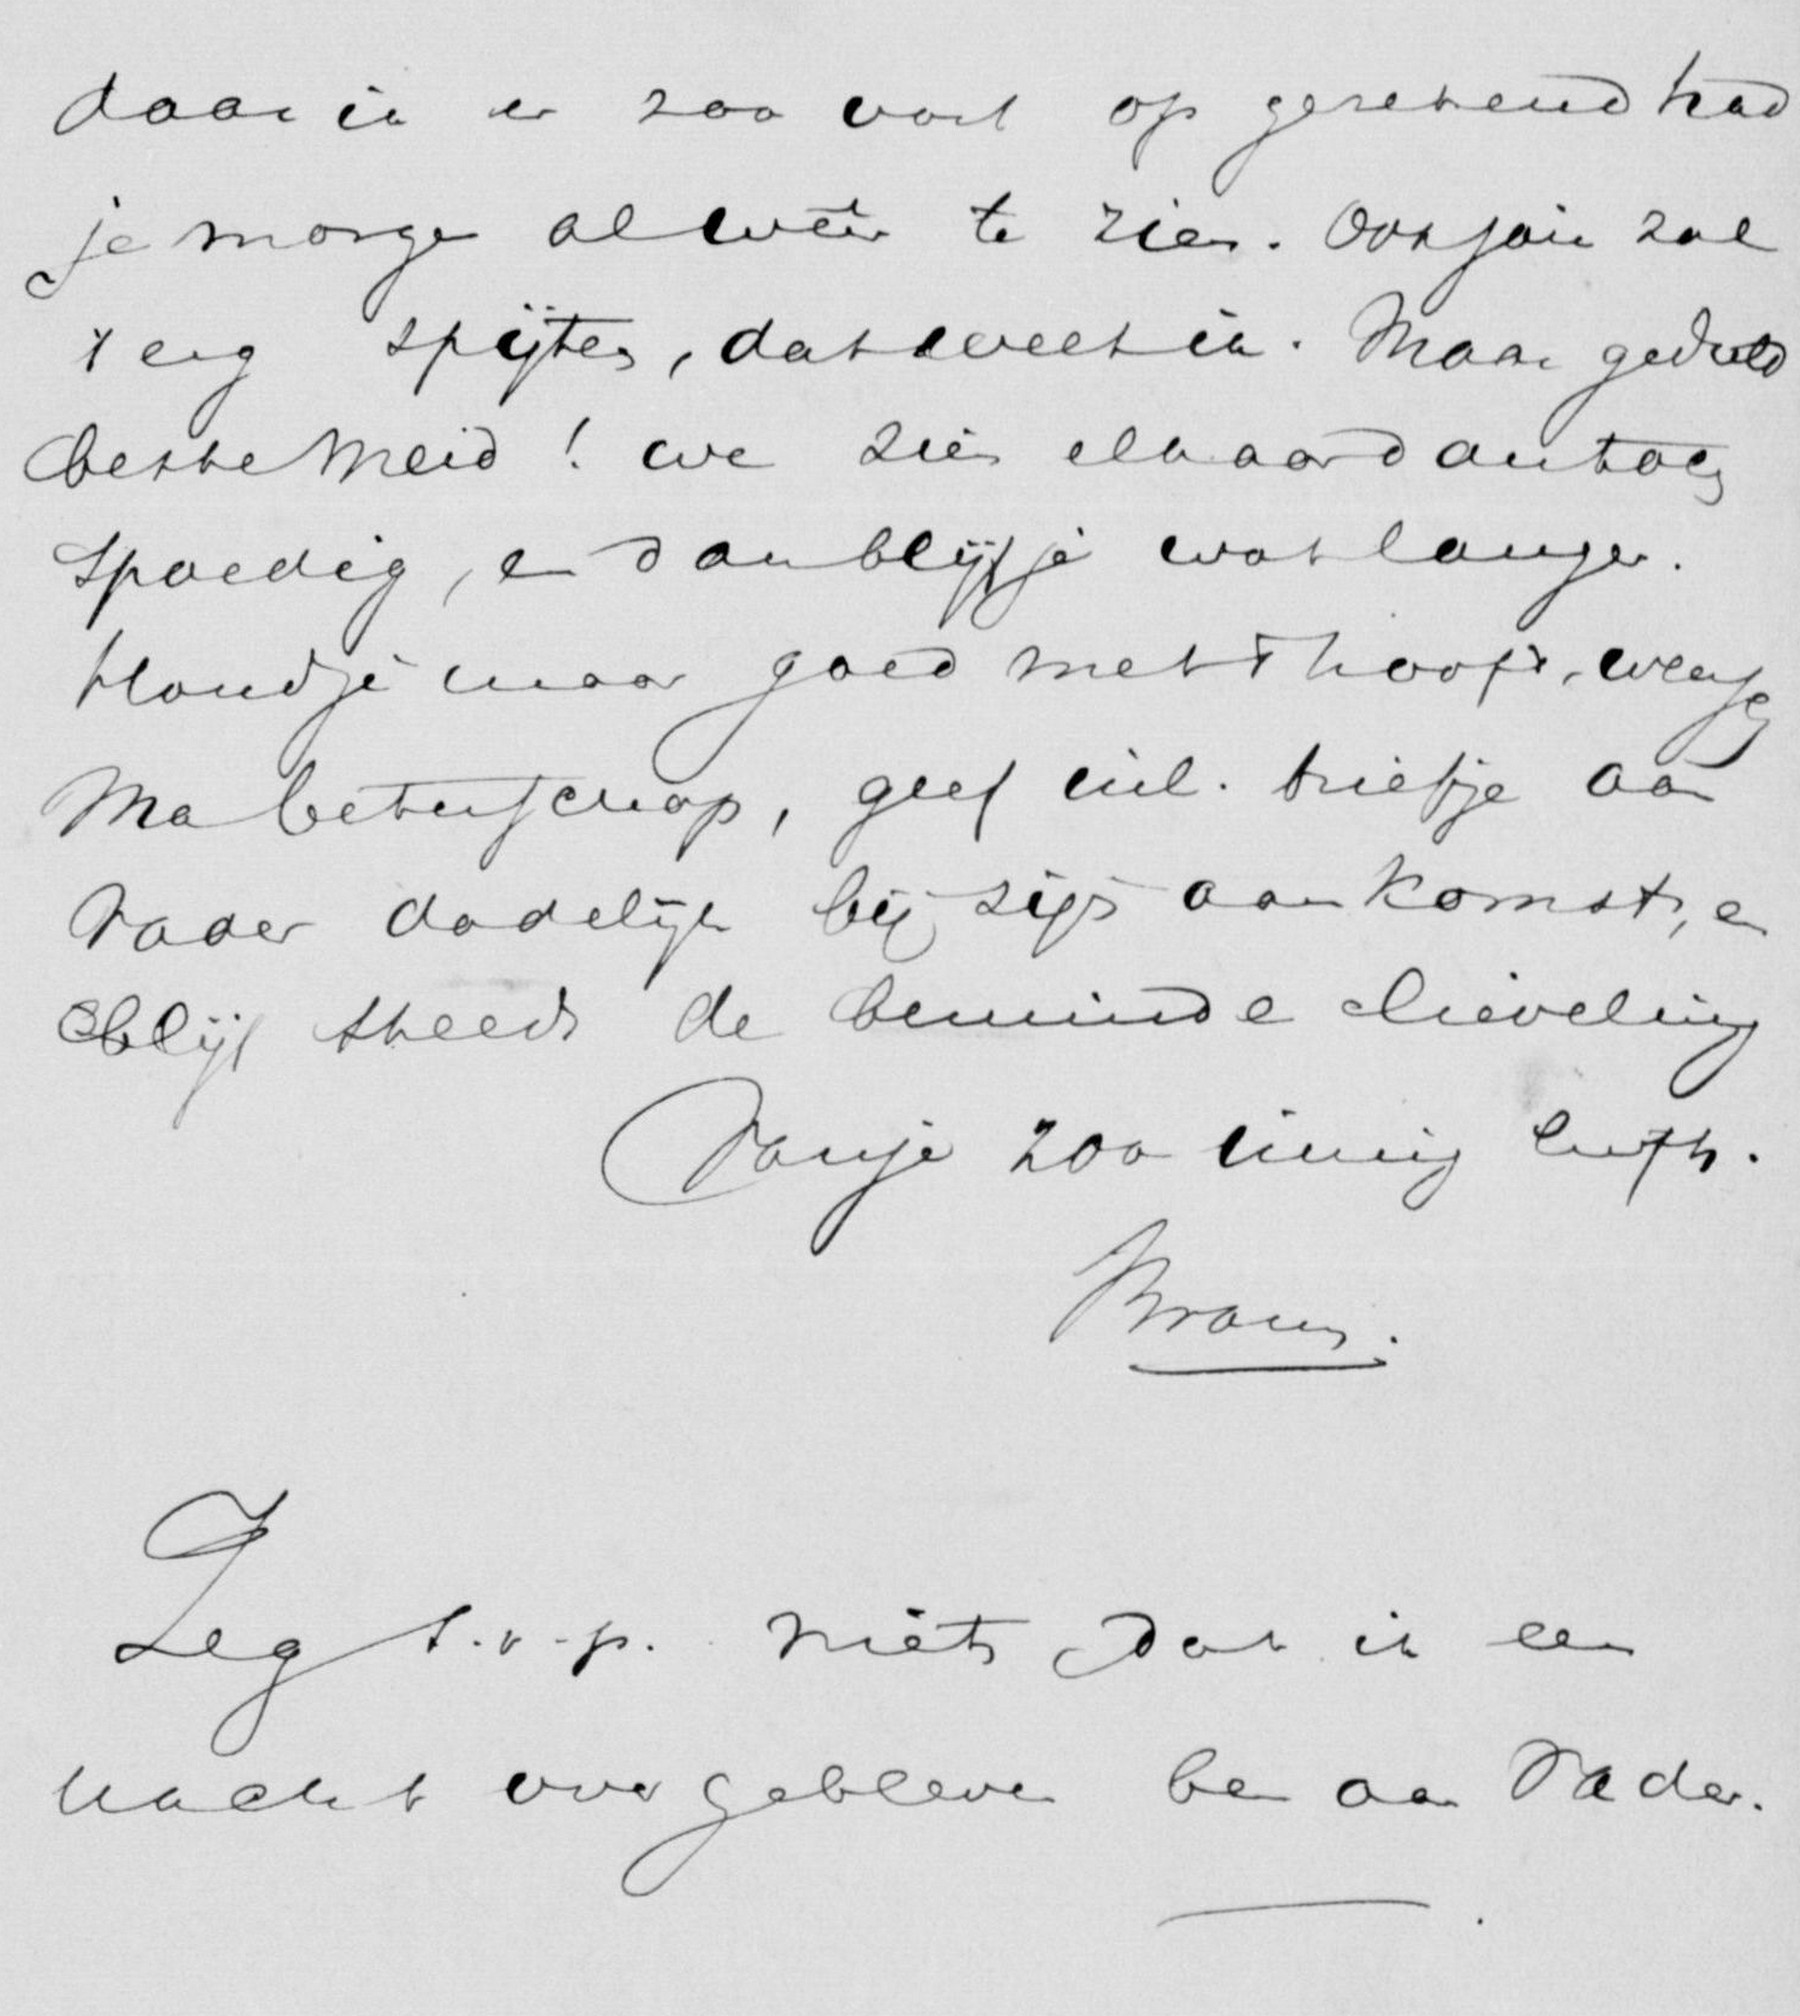 daar ik er zoo vast op gerekend had
je morgen al weêr te zien. Ook jou zal
't erg spijten, dat weet ik. Maar geduld
beste Meid! we zien elkaar dan toch
spoedig, en dan blijf je wat langer.
Houd je maar goed met 't hoofd, wensch
Ma beterschap, geef incl. briefje aan
Vader dadelijk bij zijn aankomst, en
blijf steeds de beminde lieveling
Van je zoo innig liefh.
Bram.
Zeg s.v.p. niets dat ik een
nacht over gebleven ben aan Vader.